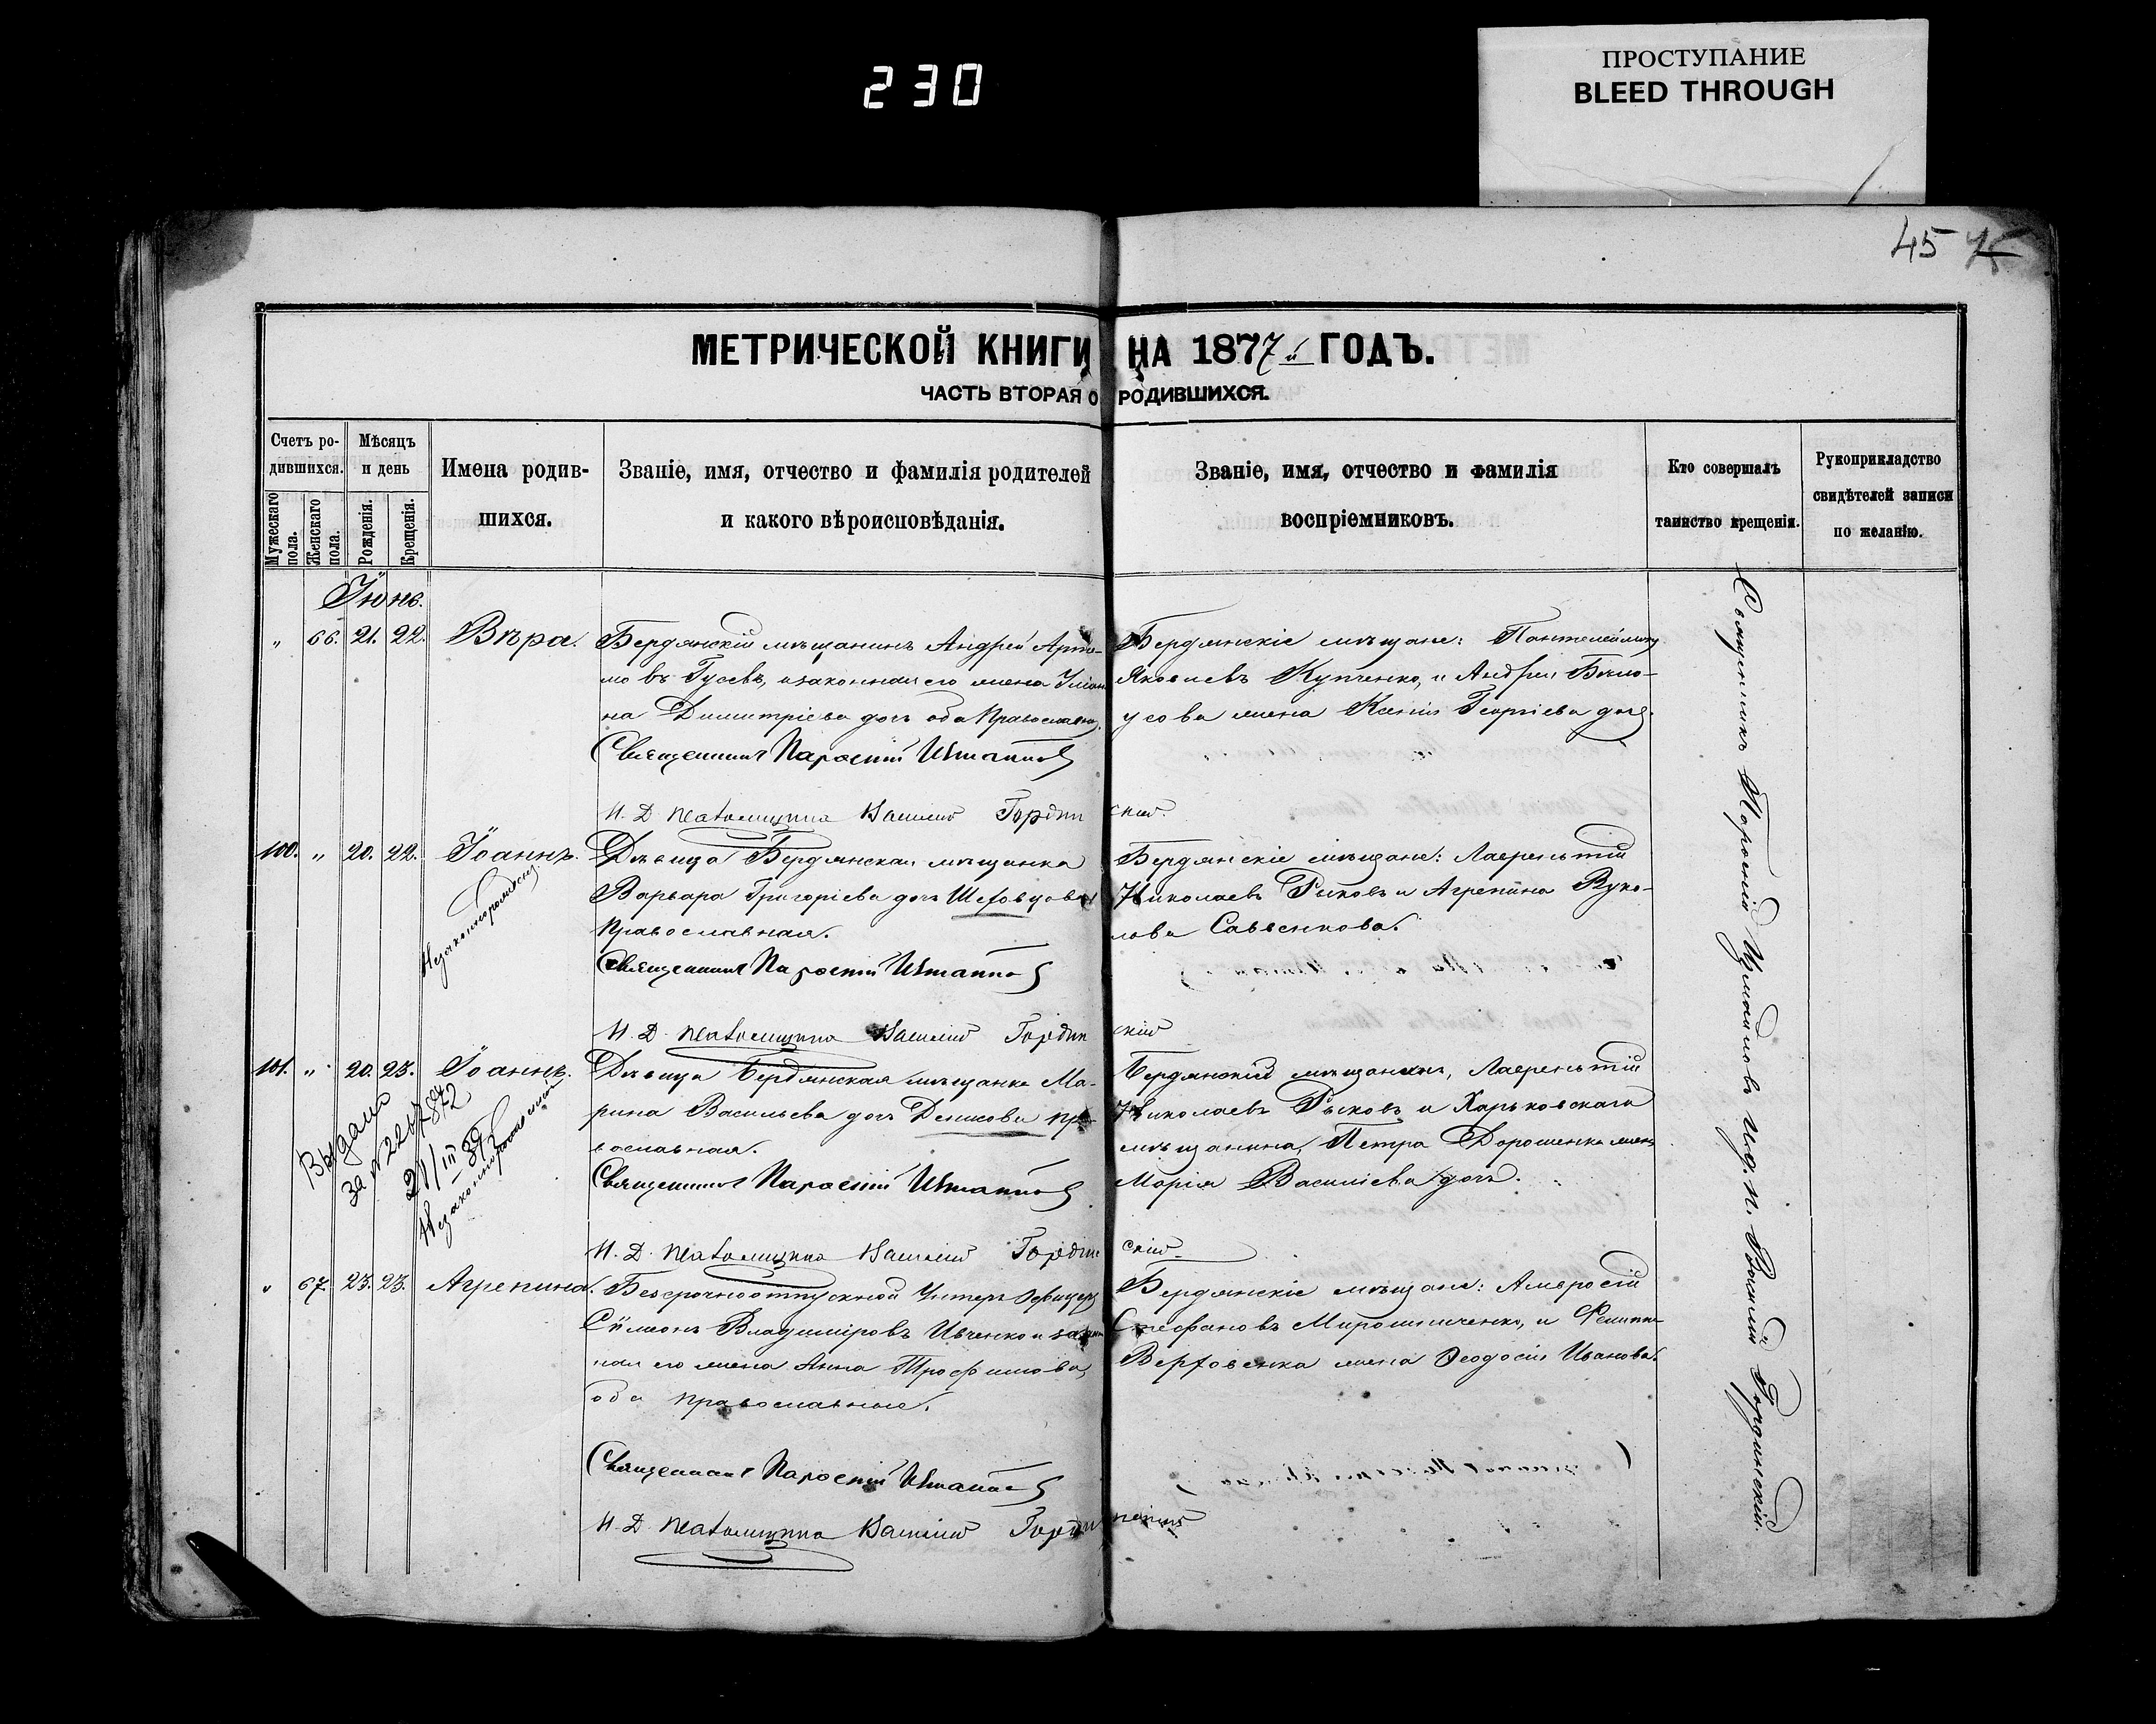 230
ПРОСТУПАНИЕ
BLEED THROUGH
45
МЕТРИЧЕСКОЙ КНИГИ НА 1877й ГОДЪ.
ЧАСТЬ ВТОРАЯ О РОДИВШИХСЯ.
Счетъ ро-
дившихся.
Мужескаго пола.
Женскаго пола.
Мѣсяцъ
и день
Рожденія.
Крещенія.
Имена родив-
шихся.
Званіе, имя, отчество и фамилія родителей
и какого вѣроисповѣданія.
Званіе, имя, отчество и фамилія
воспріемниковъ.
Кто совершалъ
таинство крещенія.
Рукоприкладство
свидѣтелей записи
по желанію.
Іюнь.
" 66. 21. 22. Вѣра.
Бердянскій мѣщанинъ Андрей Арте-
мовъ Гусевъ, и законная его жена Уліа
на Димитріева дочь оба Православн.
Священникъ Пароеній
И. Д. Псаломщика Василій Гординскій.
Бердянскіе мѣщане: Пантелеймонъ
Яковлевъ Купченко, и Андрея Бѣло-
усова жена Ксенія Георгіева дочь.
100. " 20. 22. Іоаннъ.
Незаконнорожденный
Дѣвица Бердянская мѣщанка
Варвара Григоріева дочь Шеховцова
Православная.
Священникъ Пароеній
И. Д. Псаломщика Василій Гординскій
Бердянскіе мѣщане: Лаврентій
Николаевъ Рыковъ и Агрепина Вуко-
лова Савенкова.
101. " 20. 23. Іоаннъ.
Выдано
за №
21/III 89
Незаконнорожденный
Дѣвица Бердянская мѣщанка Ма-
рина Васильева дочь Денисова пра-
вославная.
Священникъ Пароеній
И. Д. Псаломщика Василій Гординскій
Бердянскій мѣщанинъ, Лаврентій
Николаевъ Рыковъ и Харьковскаго
мѣщанина, Петра Дорошенка жена
Марія Василіева дочь.
" 67. 23. 23. Агрепина.
Безсрочноотпускной Унтеръ Офицеръ
Сѵмеонъ Владиміровъ Ивченко и закон
ная его жена Анна Трофимова
оба православные.
Священникъ Пароеній
И. Д. Псаломщика Василій Гординскій
Бердянскіе мѣщане: Амвросій
Стефановъ Мирошниченко, и Филиппа
Верховенка жена Ѳеодосія Иванова.
Священникъ Пароеній Измаиловъ и. д. п. Василій Гординскій.